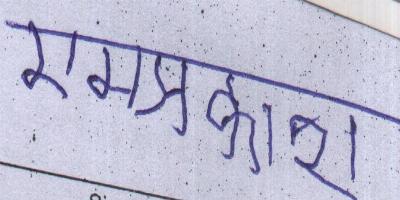 रामप्रकाश